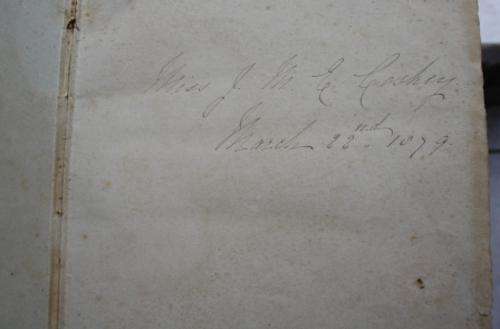 Miss J M E Coskey
March 22nd. 1879.